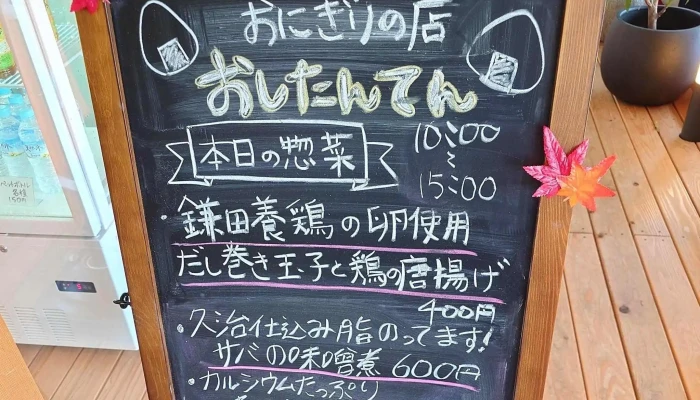 おにぎりの店
おしたんてん
本日の惣菜
10:00
~
15:00
・鎌田養鶏の卵使用
だし巻き玉子と鶏の唐揚げ
400円
・久治仕込み脂のってます!
サバの味噌煮 600円
・カルシウムたっぷり